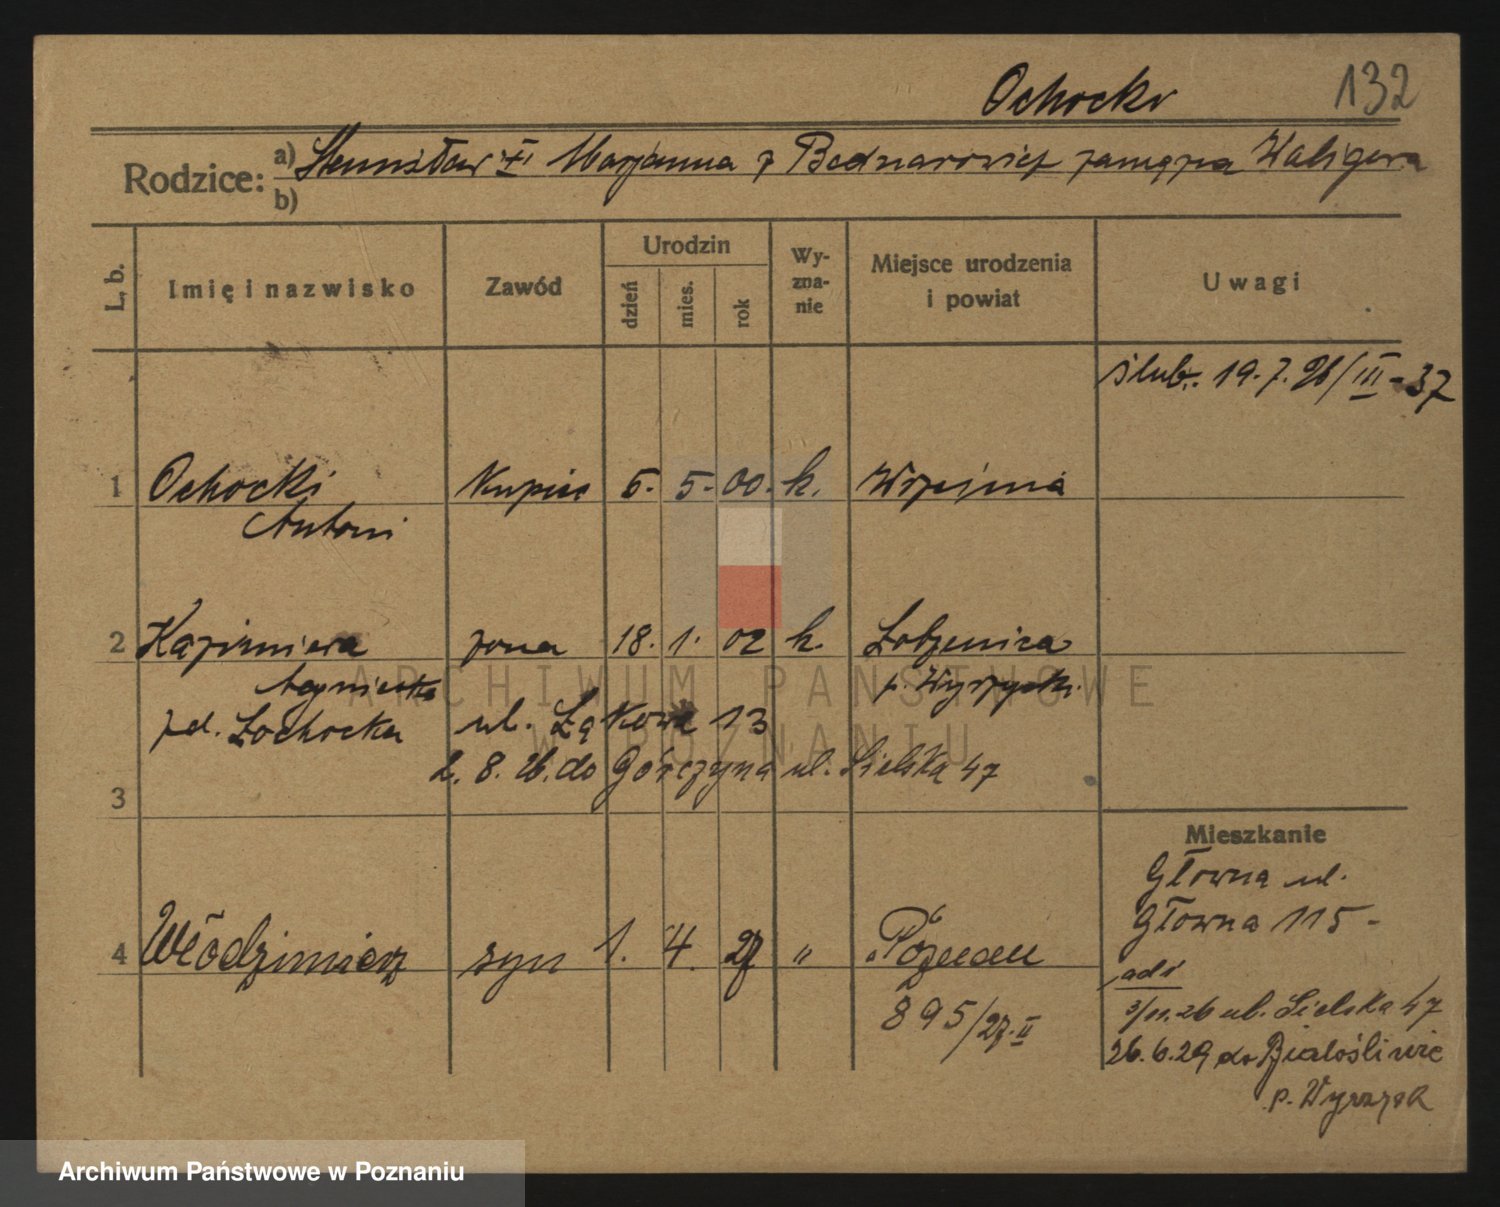 Ochocki 132
Rodzice: a) Stanisław Marjanna z Bednarowicz zamężna Waligóra
b)
L. b. Imię i nazwisko Zawód Urodzin dzień mies. rok Wyznanie Miejsce urodzenia i powiat Uwagi
ślub. 19.7.26/III - 37
1 Ochocki kupiec 6. 5. 00. k. Września
Antoni
2 Kazimiera żona 18. 1. 02 k. Łobżenica
Agnieszka p. Wyrzysk.
zd. Żochocka ul. Łąkowa 13
2. 8. 26. do Górczyna ul. Sielska 47
3
Mieszkanie
Główna ul.
Główna 115 -
4 Włodzimierz syn 1. 4. 27 „ Poznań
895/27.II
3/11.26 ul. Sielska 47
26.6.29 do Białośliwie
p. Wyrzysk
ARCHIWUM PAŃSTWOWE
W POZNANIU
Archiwum Państwowe w Poznaniu